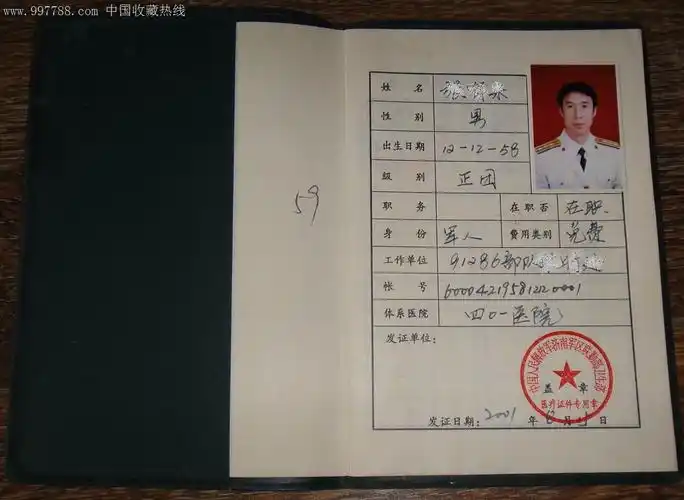 www.997788.com 中国收藏热线
59
姓 名
性 别 男
出生日期 12-12-58
级 别 正团
职 务 在职否 在职.
身 份 军人 费用类别 免费
工作单位 91286部队
帐 号
体系医院 四〇一医院
发证单位：
中国人民解放军济南军区联勤部卫生部
盖 章
医疗证件专用章
发证日期：2001 年 6 月 日